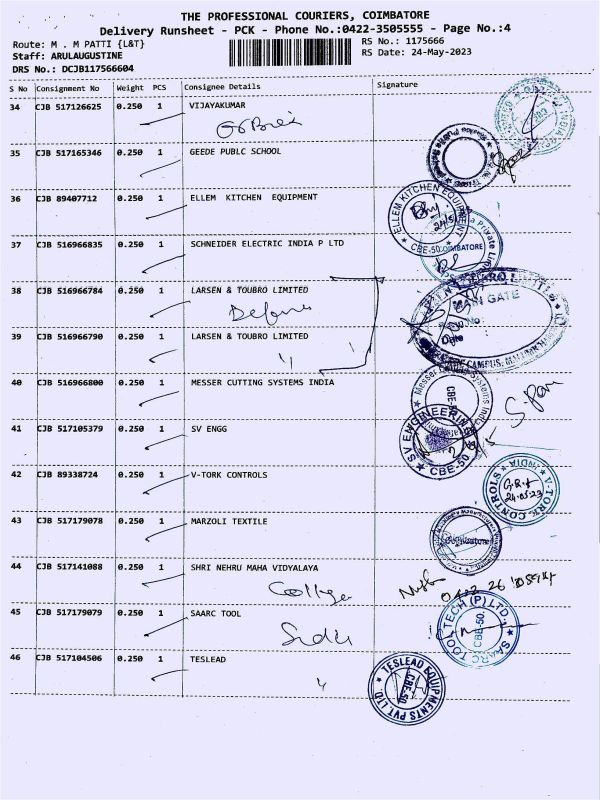 THE PROFESSIONAL COURIERS, COIMBATORE
Delivery Runsheet - PCK - Phone No.:0422-3505555 - Page No.:4
Route: M . M PATTI {L&T}
RS No.: 1175666
Staff: ARULAUGUSTINE
RS Date: 24-May-2023
DRS No.: DCJB117566604
S No Consignment No Weight PCS Consignee Details Signature
34 CJB 517126625 0.250 1 VIJAYAKUMAR
35 CJB 517165346 0.250 1 GEEDE PUBLC SCHOOL
36 CJB 89407712 0.250 1 ELLEM KITCHEN EQUIPMENT
ELLEM KITCHEN EQUIPMENT
37 CJB 516966835 0.250 1 SCHNEIDER ELECTRIC INDIA P LTD
CBE-50 COIMBATORE
Private
38 CJB 516966784 0.250 1 LARSEN & TOUBRO LIMITED
Defence
GATE
39 CJB 516966790 0.250 1 LARSEN & TOUBRO LIMITED
Date
CAMPUS,
40 CJB 516966800 0.250 1 MESSER CUTTING SYSTEMS INDIA
Messer Systems India
CBE-
41 CJB 517105379 0.250 1 SV ENGG
SV ENGINEERING
CBE-50
42 CJB 89338724 0.250 1 V-TORK CONTROLS
V-TORK CONTROLS INDIA
24.05.23
43 CJB 517179078 0.250 1 MARZOLI TEXTILE
44 CJB 517141088 0.250 1 SHRI NEHRU MAHA VIDYALAYA
College
45 CJB 517179079 0.250 1 SAARC TOOL
SAARC TOOL TECH (P) LTD.,
CBE-50.
46 CJB 517104506 0.250 1 TESLEAD
TESLEAD EQUIPMENTS PVT. LTD
CBE-50